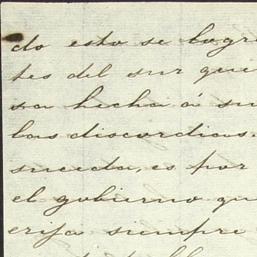 do esto se logr
tes del sur que
sa hecha á su
las discordias.
suceda, es por
el gobierno qu
erija siempre